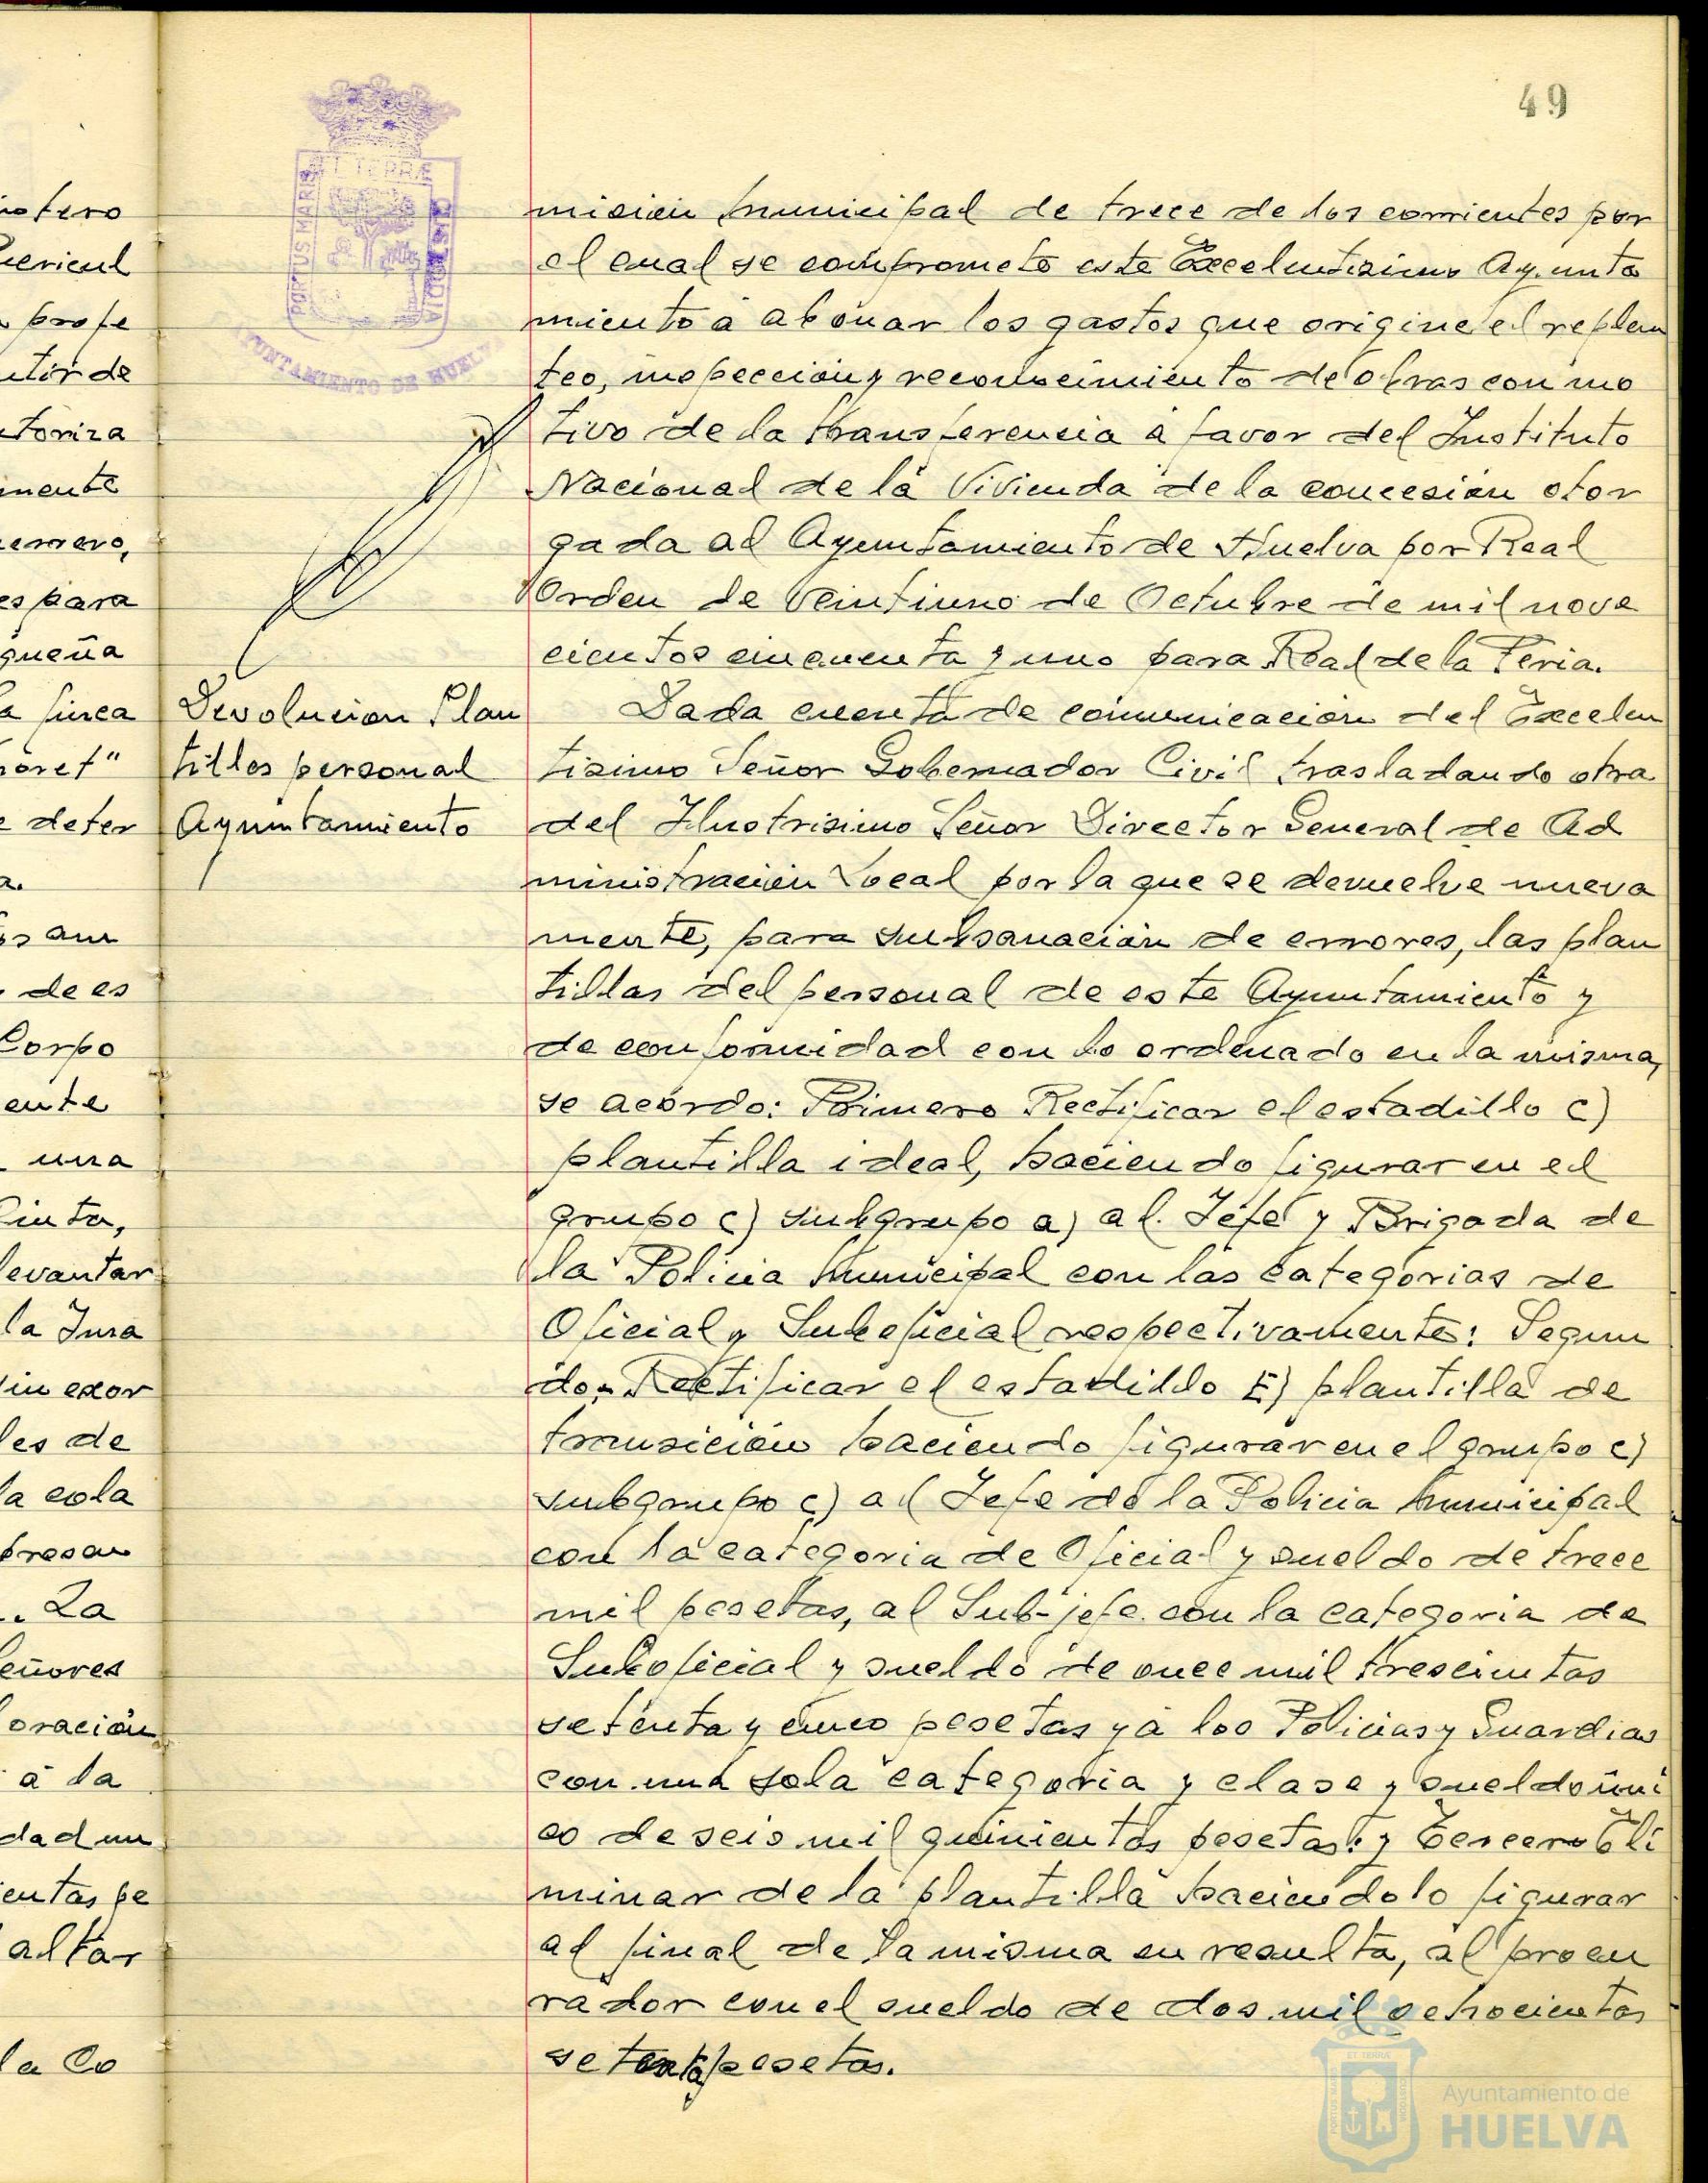 49
PORTUS MARIS ET TERRÆ CUSTODIA
AYUNTAMIENTO DE HUELVA
misión municipal de trece de los corrientes por
el cual se comprometo este Excelentisimo Ayunta
miento a abonar los gastos que origine el replan
teo, inspeccion y reconocimiento de obras con mo
tivo de la transferencia a favor del Instituto
Nacional de la Vivienda de la concesión otor
gada al Ayuntamiento de Huelva por Real
Orden de veintiuno de Octubre de mil nove
cientos cincuenta y uno para Real de la Feria.
Devolucion Plan
tillas personal
Ayuntamiento
Dada cuenta de comunicación del Excelen
tisimo Señor Gobernador Civil trasladando otra
del Ilustrisimo Señor Director General de Ad
ministración Local por la que se devuelve nueva
mente, para subsanación de errores, las plan
tillas del personal de este Ayuntamiento y
de conformidad con lo ordenado en la misma,
se acordo: Primero Rectificar el estadillo C)
plantilla ideal, haciendo figurar en el
grupo c) subgrupo a) al Jefe y Brigada de
la Policia Municipal con las categorias de
Oficial y Suboficial respectivamente: Segun
do.- Rectificar el estadillo E) plantilla de
transición haciendo figurar en el grupo c)
subgrupo c) al Jefe de la Policia Municipal
con la categoria de Oficial y sueldo de trece
mil pesetas, al Sub-jefe con la categoria de
Suboficial y sueldo de once mil trescientas
setenta y cinco pesetas y a los Policias y Guardias
con una sola categoria y clase y sueldo úni
co de seis mil quinientas pesetas: y Tercero Eli
minar de la plantilla haciendolo figurar
al final de la misma en resulta, al procu
rador con el sueldo de dos mil ochocientas
setenta pesetas.
profe
utor de
utoriza
mente
errero,
es para
queña
a finca
oret"
e deter
a.
de es
Corpo
ente
una
levantar
la Jura
les de
la cola
. La
eñores
oración
a la
dad un
entas pe
altar
la Co
Ayuntamiento de
HUELVA